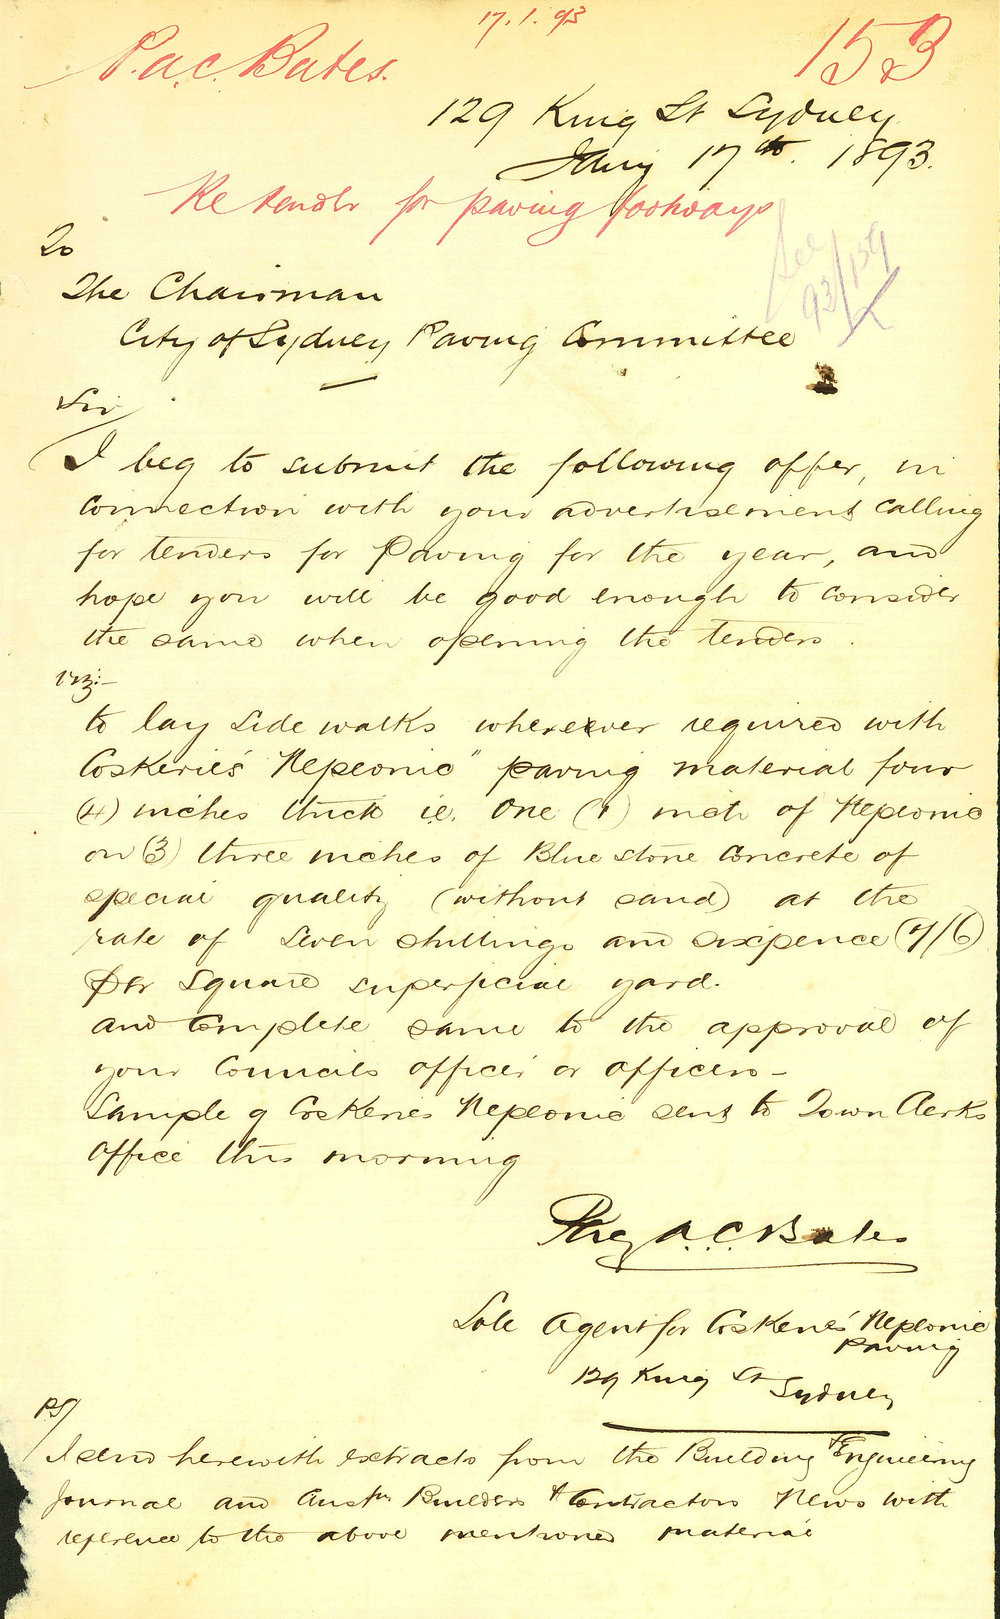 17.1.93
P.A.C. Bates.
153
129 King St Sydney
Jany 17th. 1893.
Re tender for paving footways
See
93/159
To
The Chairman
City of Sydney Paving Committee
Sir/
I beg to submit the following offer, in
connection with your advertisement calling
for tenders for Paving for the year, and
hope you will be good enough to consider
the same when opening the tenders.
viz:-
to lay side walks wherever required with
Coskerie's "Nepeonic" paving material four
(4) inches thick i.e. One (1) inch of Nepeonic
on (3) three inches of Blue stone Concrete of
special quality (without sand) at the
rate of seven shillings and sixpence (7/6)
per square superficial yard.
and Complete same to the approval of
your Councils officer or officers -
Sample of Coskeries Nepeonic sent to Town Clerks
Office this morning
A.C. Bates
Sole Agent for Coskeries' Nepeonic
Paving
129 King St Sydney
PS/
I send herewith extracts from the Building & Engineering
Journal and Austn Builders & Contractors News with
reference to the above mentioned material